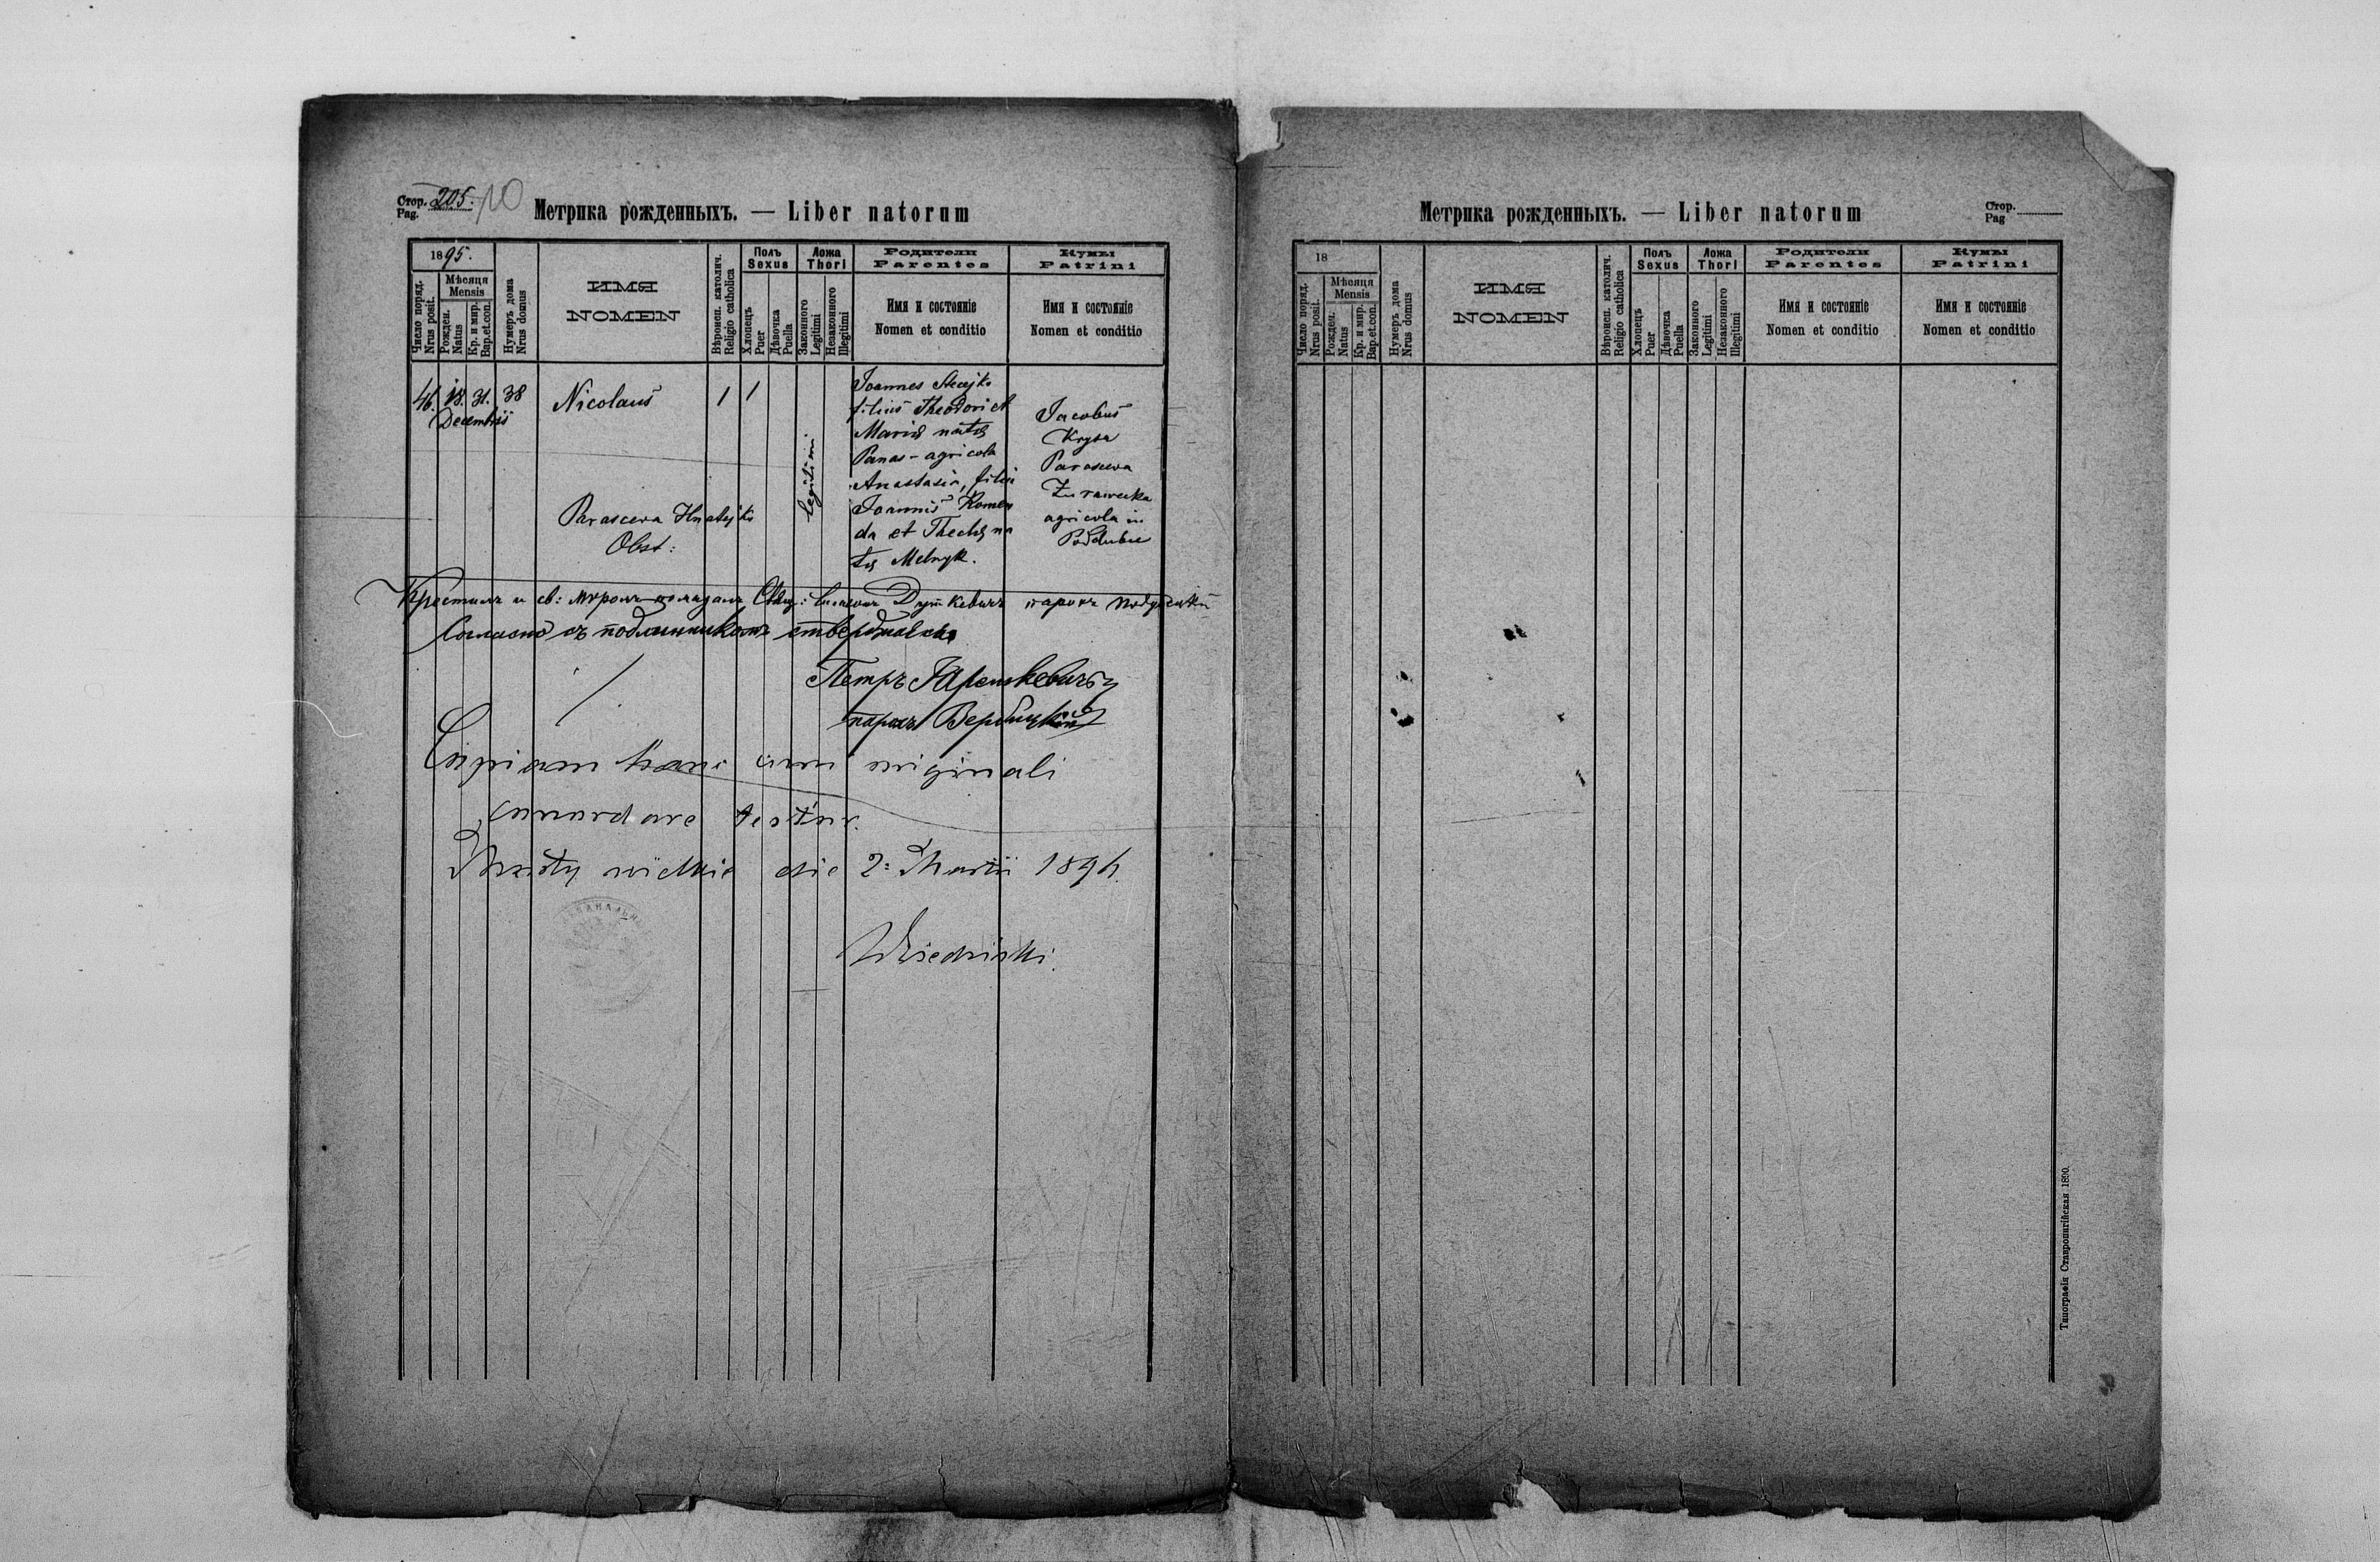 Стор.
Pag.
205.
10
Метрика рожденныхъ. — Liber natorum
1895.
Число поряд.
Nrus posit.
Мѣсяця
Mensis
Рожден.
Natus
Кр. и мир.
Bap. et con.
Нумеръ дома
Nrus domus
ИМЯ
NOMEN
Вѣроисп. католич.
Religio catholica
Полъ
Sexus
Хлопецъ
Puer
Дѣвочка
Puella
Ложа
Thori
Законного
Legitimi
Незаконного
Illegitimi
Родители
Parentes
Имя и состояніе
Nomen et conditio
Кумы
Patrini
Имя и состояніе
Nomen et conditio
46. 18. 31. 38
Decembris
Nicolaus
1 1
legitimi
Joannes Stecjko
filius Theodori et
Maria nata
Panas - agricola
Anastasia, filia
Joannis Romen
da et Thecla na
ta Melnyk.
Jacobus
Krysa
Parasceva
Żurawecka
agricola in
Poddubce
Parasceva Hnatejko
Obst:
Крестилъ и св: мѵромъ помазалъ Свящ: Дуткевичъ парохъ
Согласно съ подлинникомъ
Петръ
парохъ Вербицкій
Copiam hanc cum originali
concordare testor.
Mosty wielkie die 2: Martii 1896.
Метрика рожденныхъ. — Liber natorum
Стор.
Pag
18
Число поряд.
Nrus posit.
Мѣсяця
Mensis
Рожден.
Natus
Кр. и мир.
Bap. et con.
Нумеръ дома
Nrus domus
ИМЯ
NOMEN
Вѣроисп. католич.
Religio catholica
Полъ
Sexus
Хлопецъ
Puer
Дѣвочка
Puella
Ложа
Thori
Законного
Legitimi
Незаконного
Illegitimi
Родители
Parentes
Имя и состояніе
Nomen et conditio
Кумы
Patrini
Имя и состояніе
Nomen et conditio
Типографія Ставропигійская 1890.